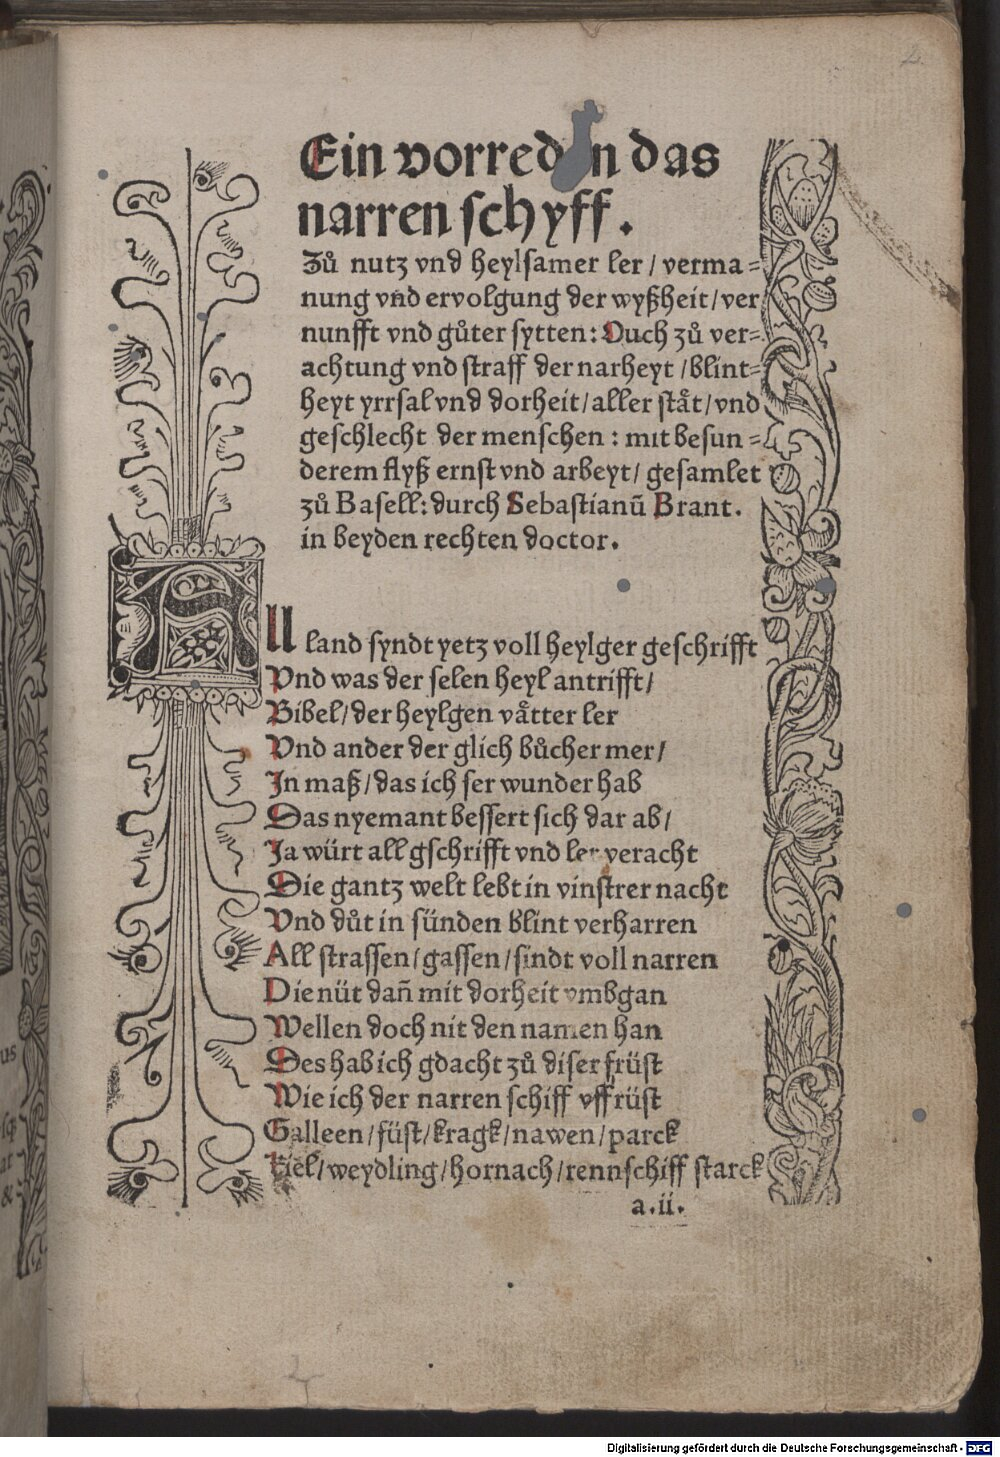 2.
Ein vorred in das
narren schyff.
Zů nutz vnd heylsamer ler / verma=
nung vnd ervolgung der wyßheit / ver
nunfft vnd gůter sytten: Ouch zů ver=
achtung vnd straff der narheyt / blint=
heyt yrrsal vnd dorheit / aller ståt / vnd
geschlecht der menschen: mit besun=
derem flyß ernst vnd arbeyt / gesamlet
zů Basell: durch Sebastianū Brant.
in beyden rechten doctor.
All land syndt yetz voll heylger geschrifft
Vnd was der selen heyl antrifft /
Bibel / der heylgen våtter ler
Vnd ander der glich bůcher mer /
In maß / das ich ser wunder hab
Das nyemant bessert sich dar ab /
Ja würt all gschrifft vnd ler veracht
Die gantz welt lebt in vinstrer nacht
Vnd důt in sünden blint verharren
All strassen / gassen / sindt voll narren
Die nüt dañ mit dorheit vmbgan
Wellen doch nit den namen han
Des hab ich gdacht zů diser früst
Wie ich der narren schiff vff rüst
Galleen / füst / kragk / nawen / parck
Kiel / weydling / hornach / rennschiff starck
a.ii.
Digitalisierung gefördert durch die Deutsche Forschungsgemeinschaft - DFG